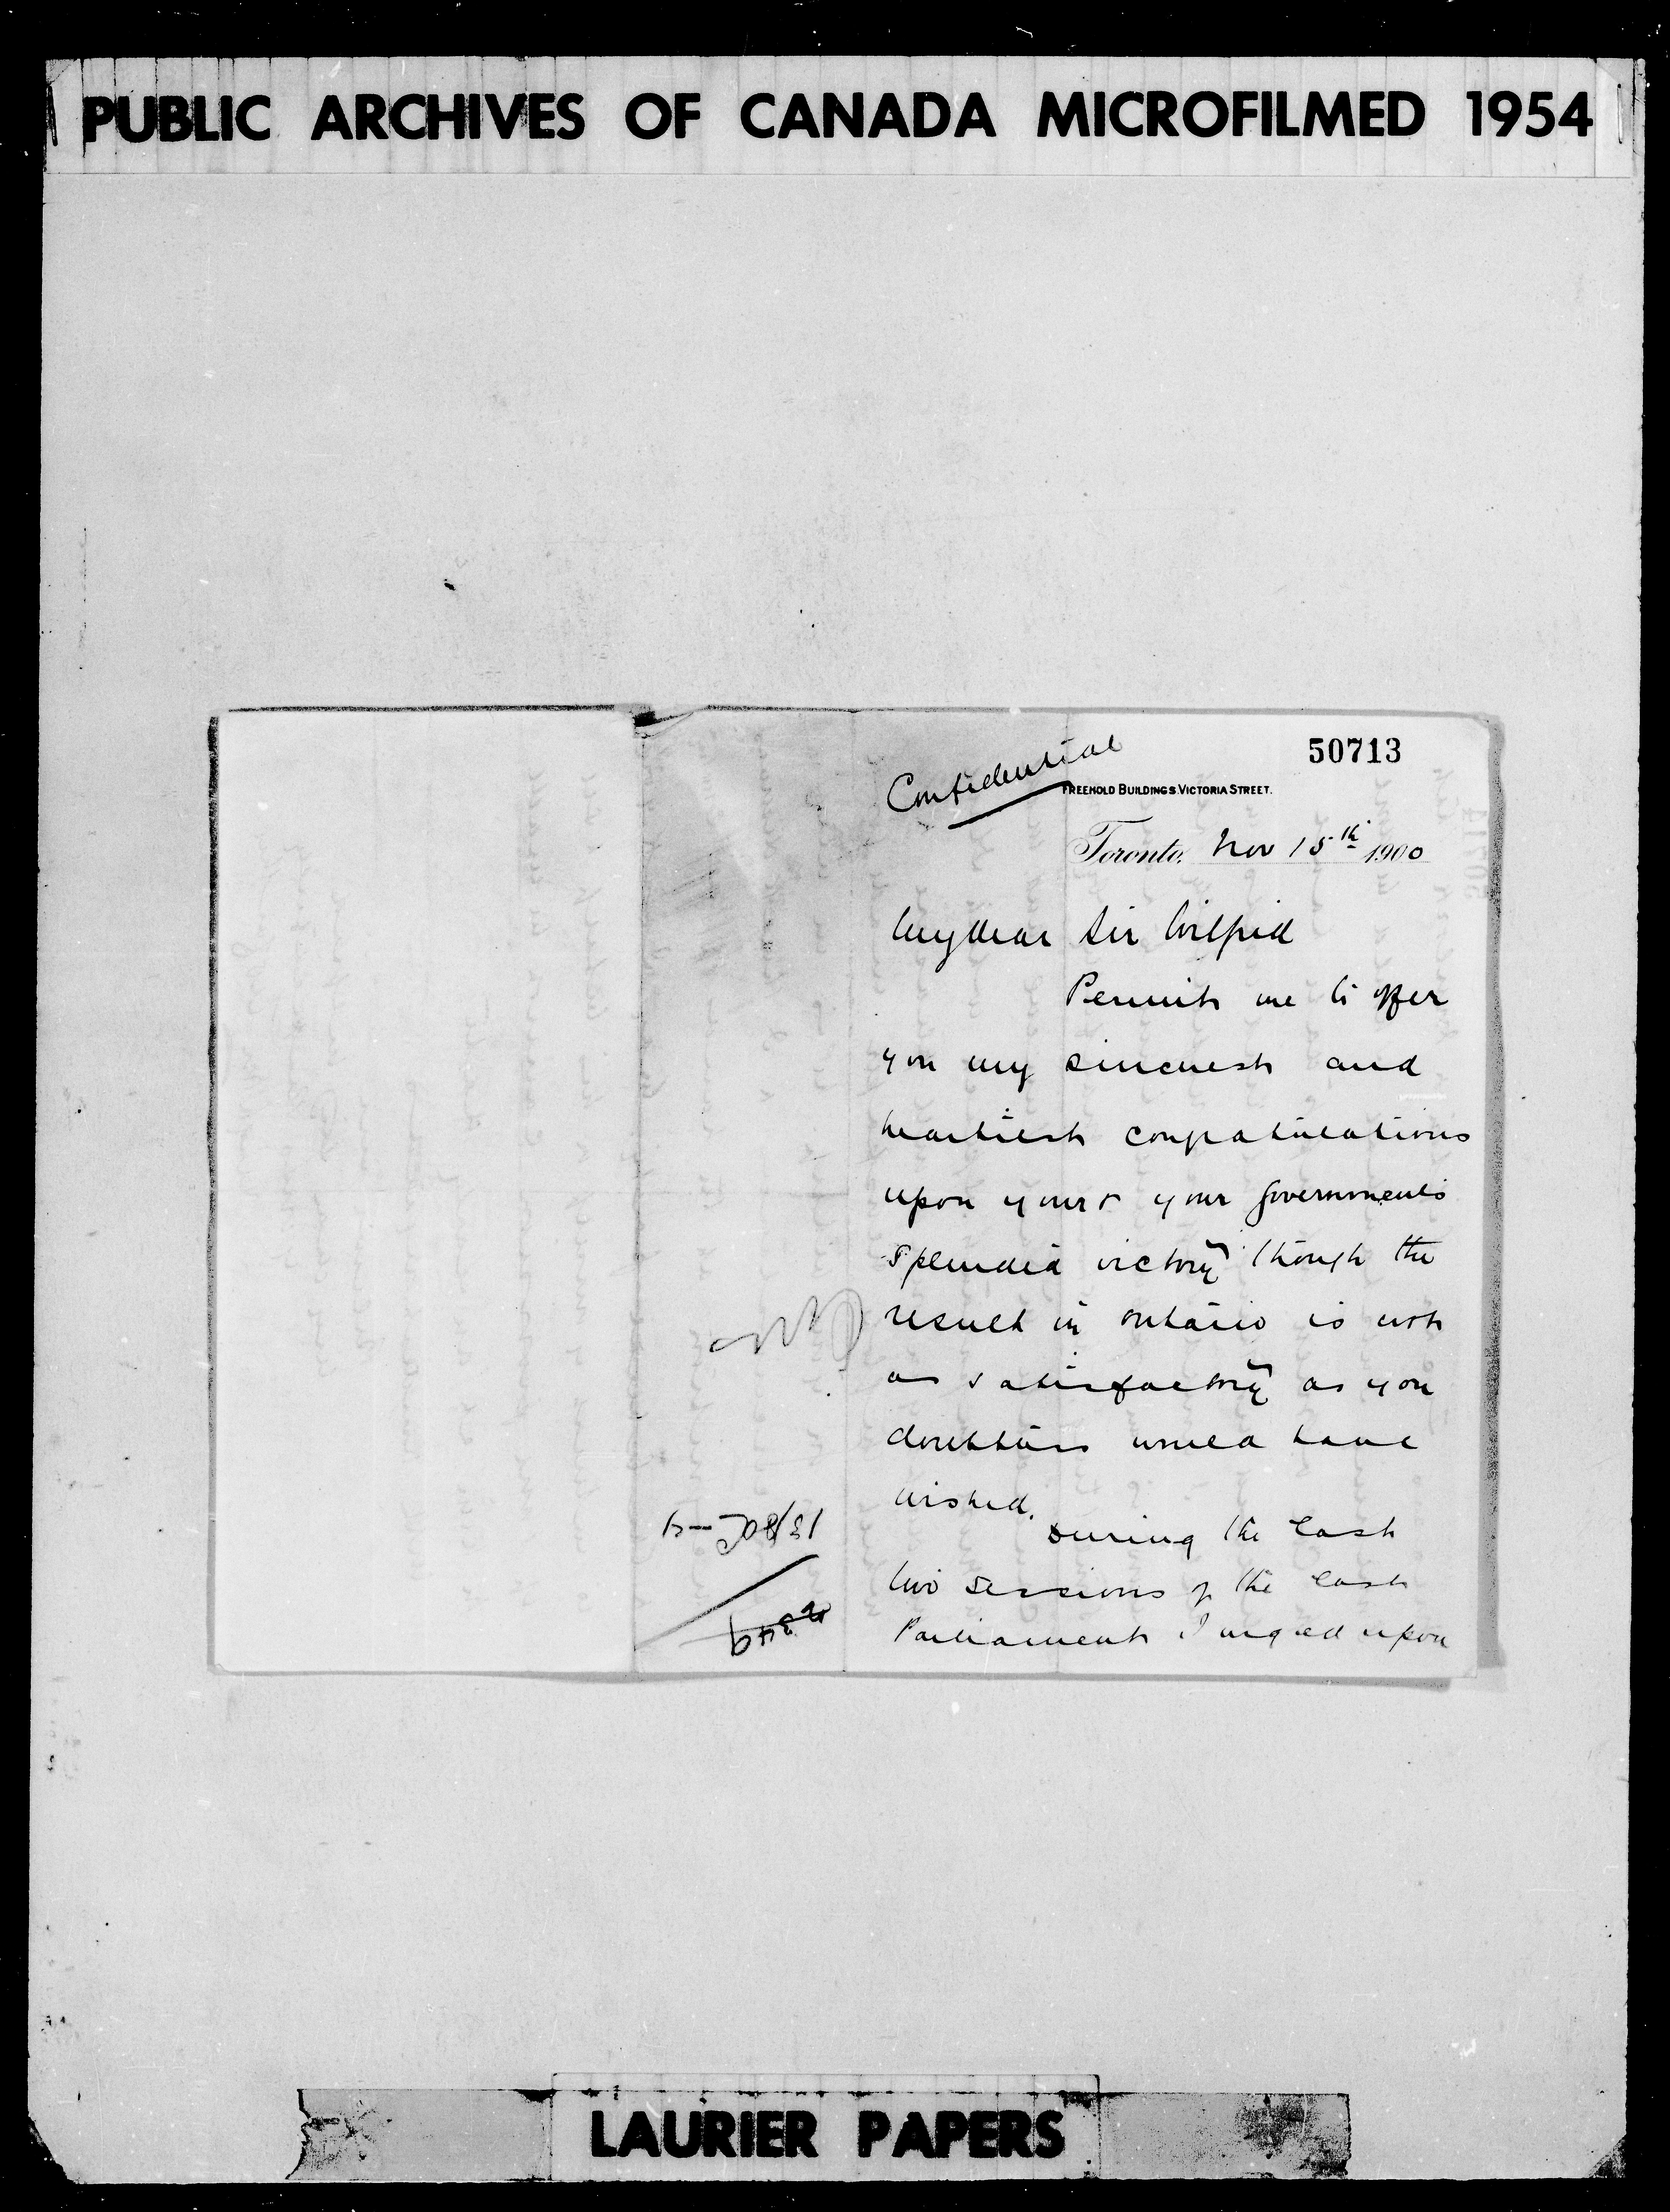 PUBLIC ARCHIVES OF CANADA MICROFILMED 1954
50713
Confidential
FREEHOLD BUILDINGS VICTORIA STREET.
Toronto, Nov 15th 1900
My dear Sir Wilfrid
Permit me to offer
you my sincerest and
heartiest congratulations
upon your & your governments
splendid victory though the
result in Ontario is not
as satisfactory as you
doubtless would have
wished.
During the last
two sessions of the last
Parliament I urged upon
LAURIER PAPERS